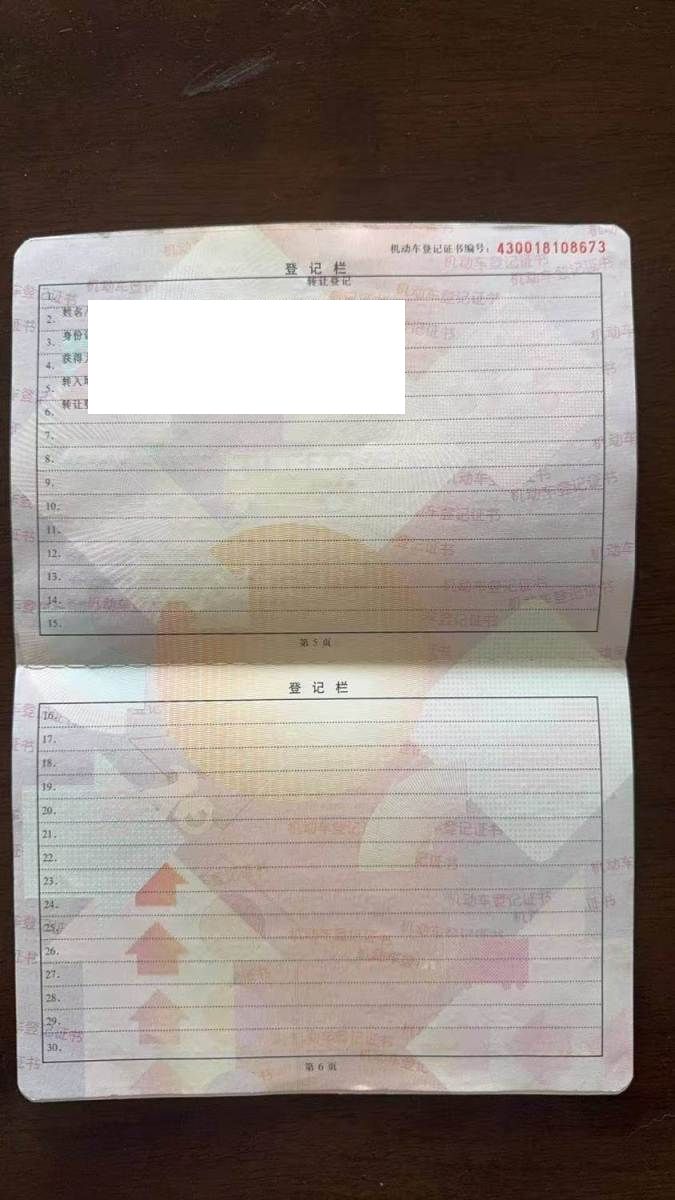 机动车登记证书编号：430018108673
登记栏
转让登记
1.
2. 姓名
3. 身份
4. 获得
5. 转入
6. 转让
7.
8.
9.
10.
11.
12.
13.
14.
15.
第 5 页
登记栏
16.
17.
18.
19.
20.
21.
22.
23.
24.
25.
26.
27.
28.
29.
30.
第 6 页